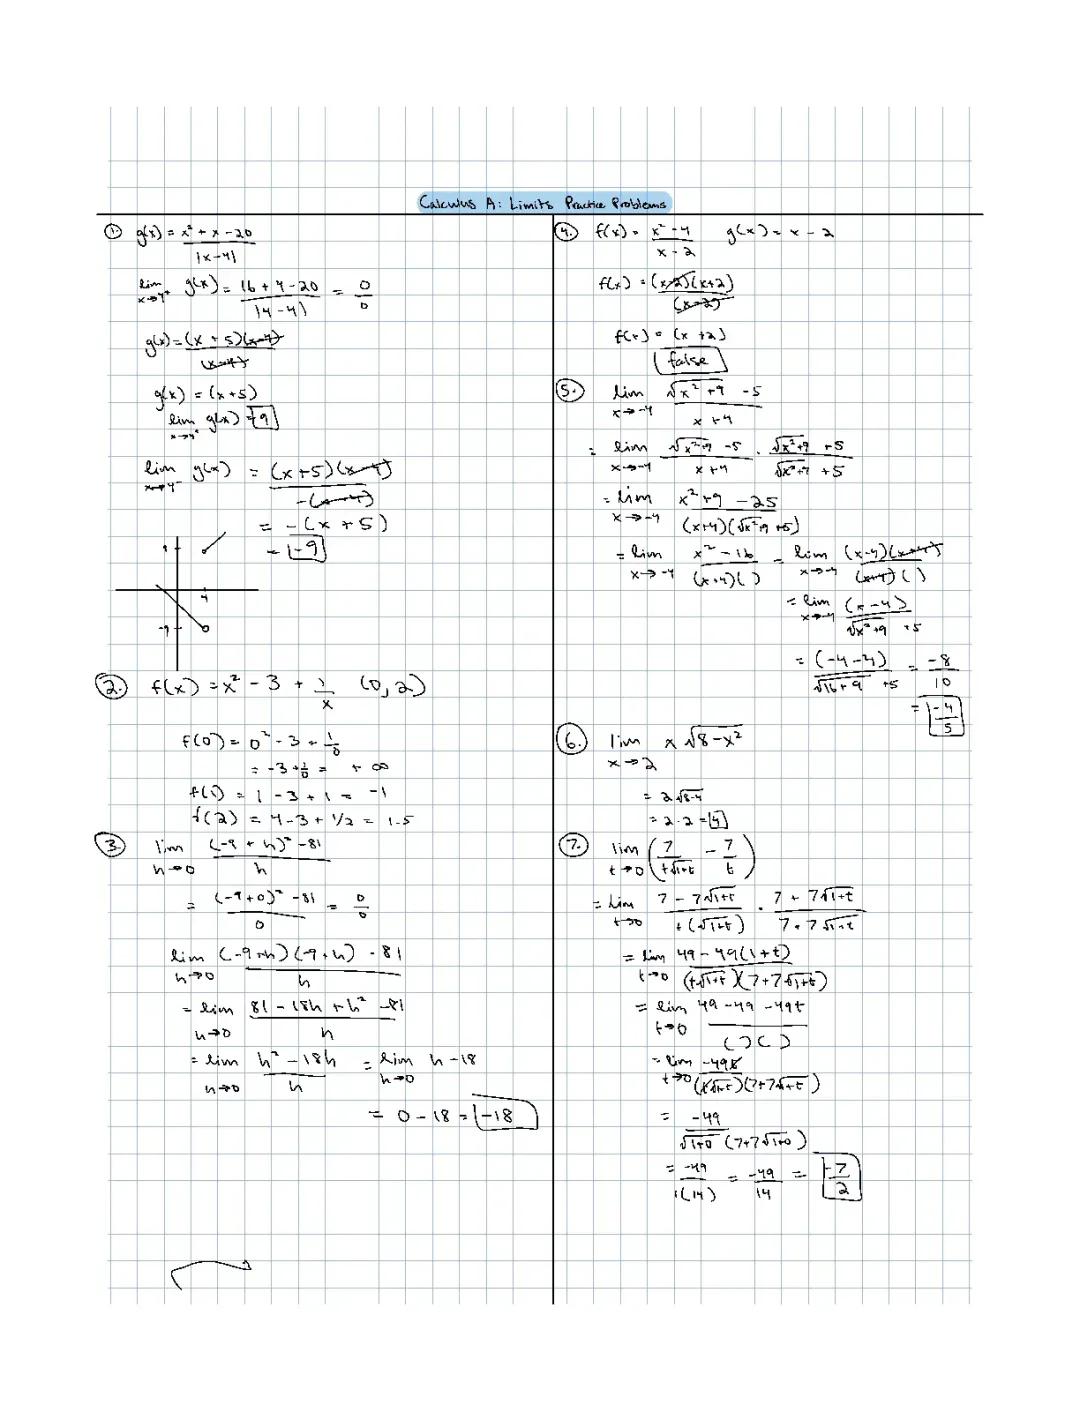 Calculus A: Limits Practice Problems
1. g(x) = x² + x - 20 / |x-4|
lim x→4⁺ g(x) = 16 + 4 - 20 / |4-4| = 0/0
g(x) = (x+5)(x-4) / (x-4)
g(x) = (x+5)
lim x→4⁺ g(x) = 9
lim x→4⁻ g(x) = (x+5)(x-4) / -(x-4)
= -(x+5)
= -9
4
-9
2. f(x) = x² - 3 + 1/x (0,2)
f(0⁺) = 0² - 3 + 1/0
= -3 + 1/0 = +∞
f(1) = 1 - 3 + 1 = -1
f(2) = 4 - 3 + 1/2 = 1.5
3. lim h→0 (-9 + h)² - 81 / h
= (-9+0)² - 81 / 0 = 0/0
lim h→0 (-9+h)(-9+h) - 81 / h
= lim h→0 81 - 18h + h² - 81 / h
= lim h→0 h² - 18h / h = lim h→0 h - 18
= 0 - 18 = -18
4. f(x) = x² - 4 / x - 2 g(x) = x - 2
f(x) = (x-2)(x+2) / (x-2)
f(x) = (x+2)
false
5. lim x→-4 √x² + 9 - 5 / x + 4
= lim x→-4 √x²+9 - 5 / x+4 · √x²+9 + 5 / √x²+9 + 5
= lim x→-4 x² + 9 - 25 / (x+4)(√x²+9 + 5)
= lim x→-4 x² - 16 / (x+4)( ) = lim x→-4 (x-4)(x+4) / (x+4)( )
= lim x→-4 (x-4) / √x²+9 + 5
= (-4-4) / √16+9 + 5 = -8/10
= -4/5
6. lim x→2 x√8-x²
= 2√8-4
= 2·2 = 4
7. lim t→0 (7/t√1+t - 7/t)
= lim t→0 7 - 7√1+t / t(√1+t) · 7 + 7√1+t / 7+7√1+t
= lim t→0 49 - 49(1+t) / (t√1+t)(7+7√1+t)
= lim t→0 49 - 49 - 49t / ( )( )
= lim t→0 -49t / (t√1+t)(7+7√1+t)
= -49 / √1+0 (7+7√1+0)
= -49 / 1(14) = -49/14 = -7/2